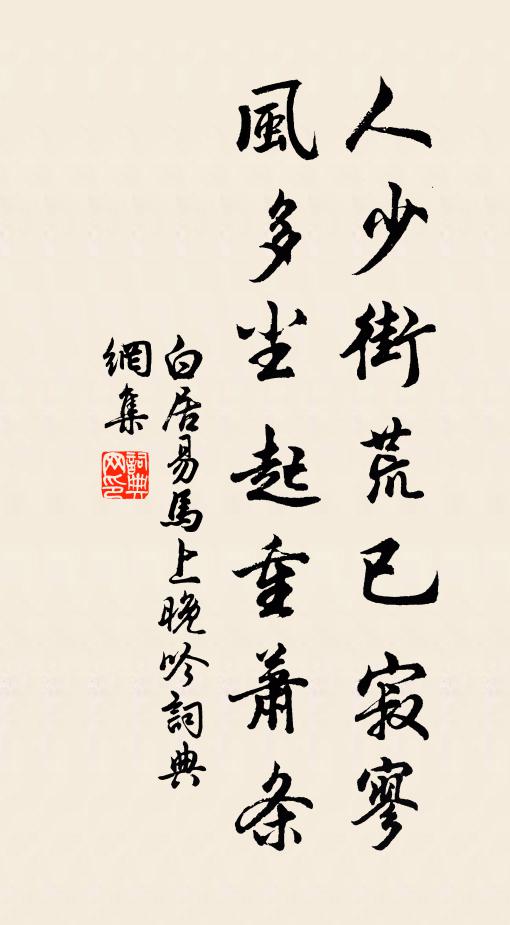 人少街荒已寂寥
風多尘起重蕭条
白居易馬上晚吟詞典
網集
詞典网印